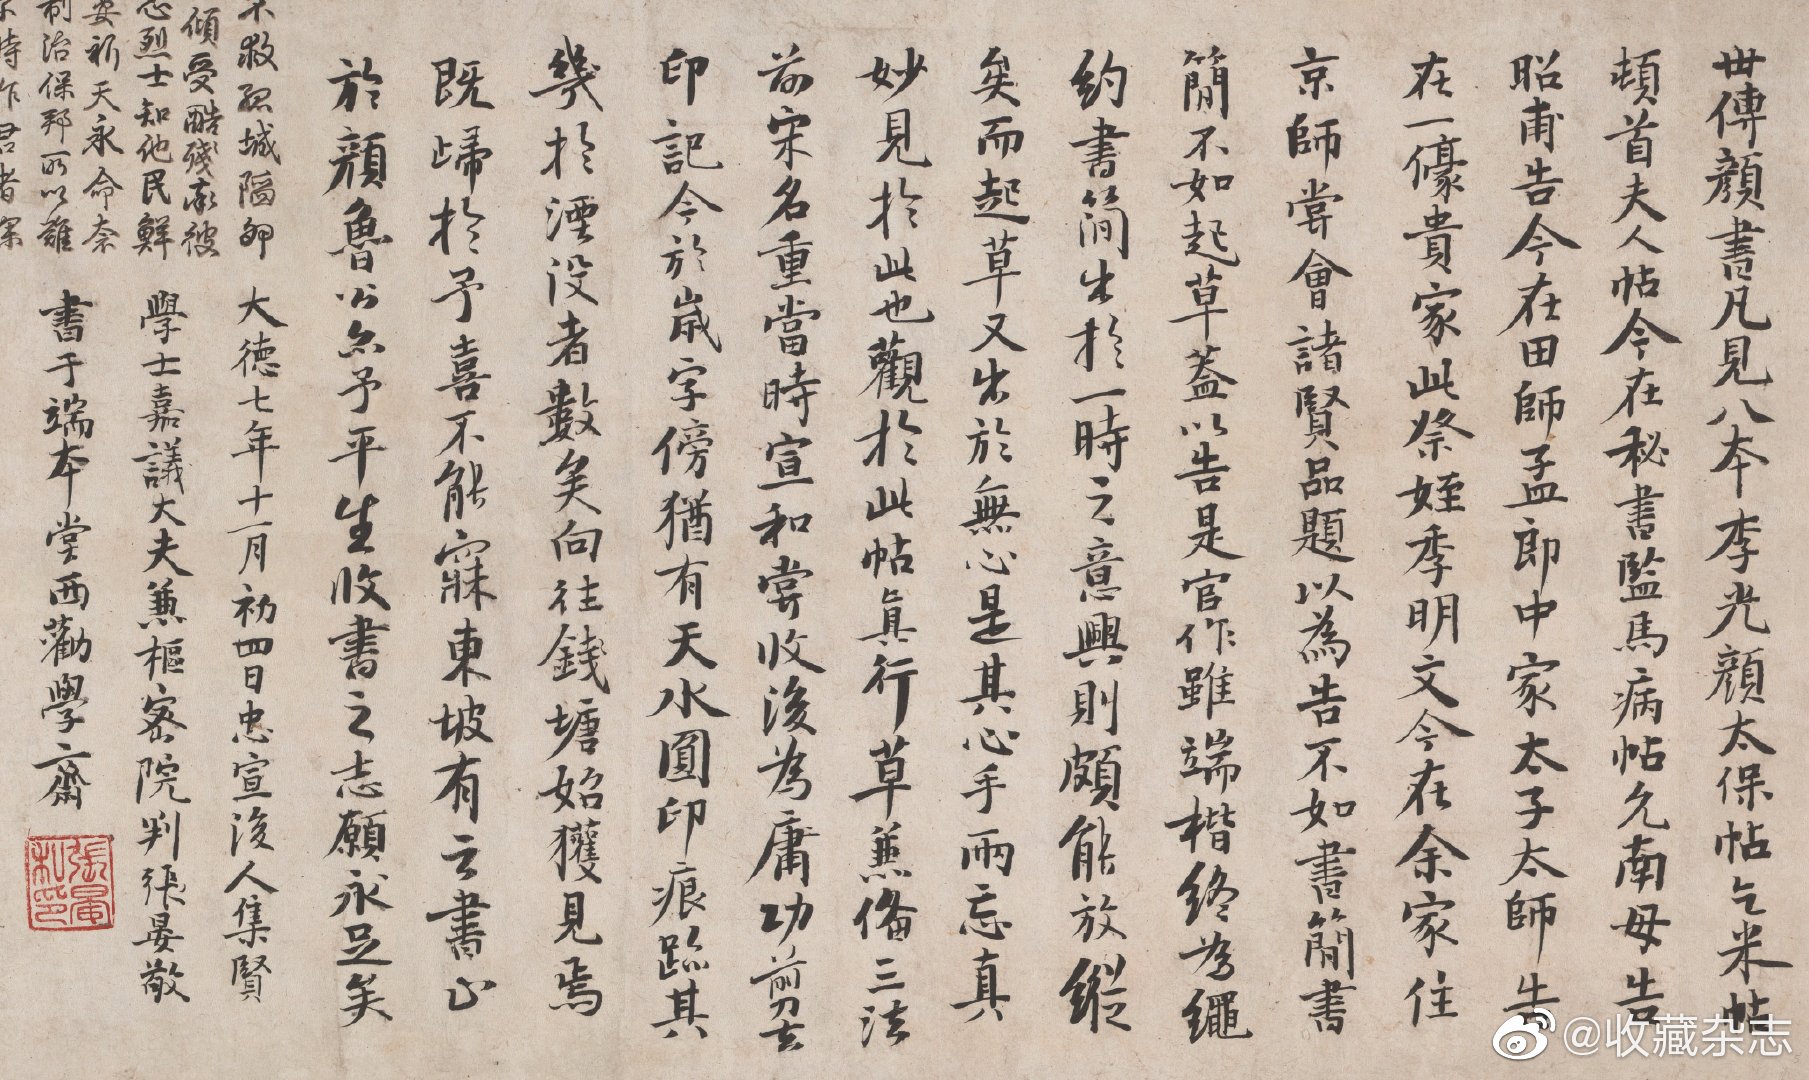 世傳顏書凡見八本李光顏太保帖乞米帖
頓首夫人帖今在秘書監馬病帖允南母告
昭甫告今在田師孟郎中家太子太師告
在一豪貴家此祭姪季明文今在余家住
京師嘗會諸賢品題以為告不如書簡書
簡不如起草蓋以告是官作雖端楷終為繩
約書簡出於一時之意興則頗能放縱
矣而起草又出於無心是其心手兩忘真
妙見於此也觀於此帖真行草兼備三法
前宋名重當時宣和嘗收後為庸功剪去
印記今於歲字傍猶有天水圓印痕跡其
幾於湮没者數矣向往錢塘始獲見焉
既歸於予喜不能寐東坡有云書止
於顏魯公亦予平生收書之志願永足矣
大德七年十一月初四日忠宣後人集賢
學士嘉議大夫兼樞密院判張晏敬
書于端本堂西勸學齋
不救孤城隔
傾受酷殘哀彼
烈士知他民鮮
安祈天永命奈
制治保邦所以難
時作君者深
張晏私印
@收藏杂志